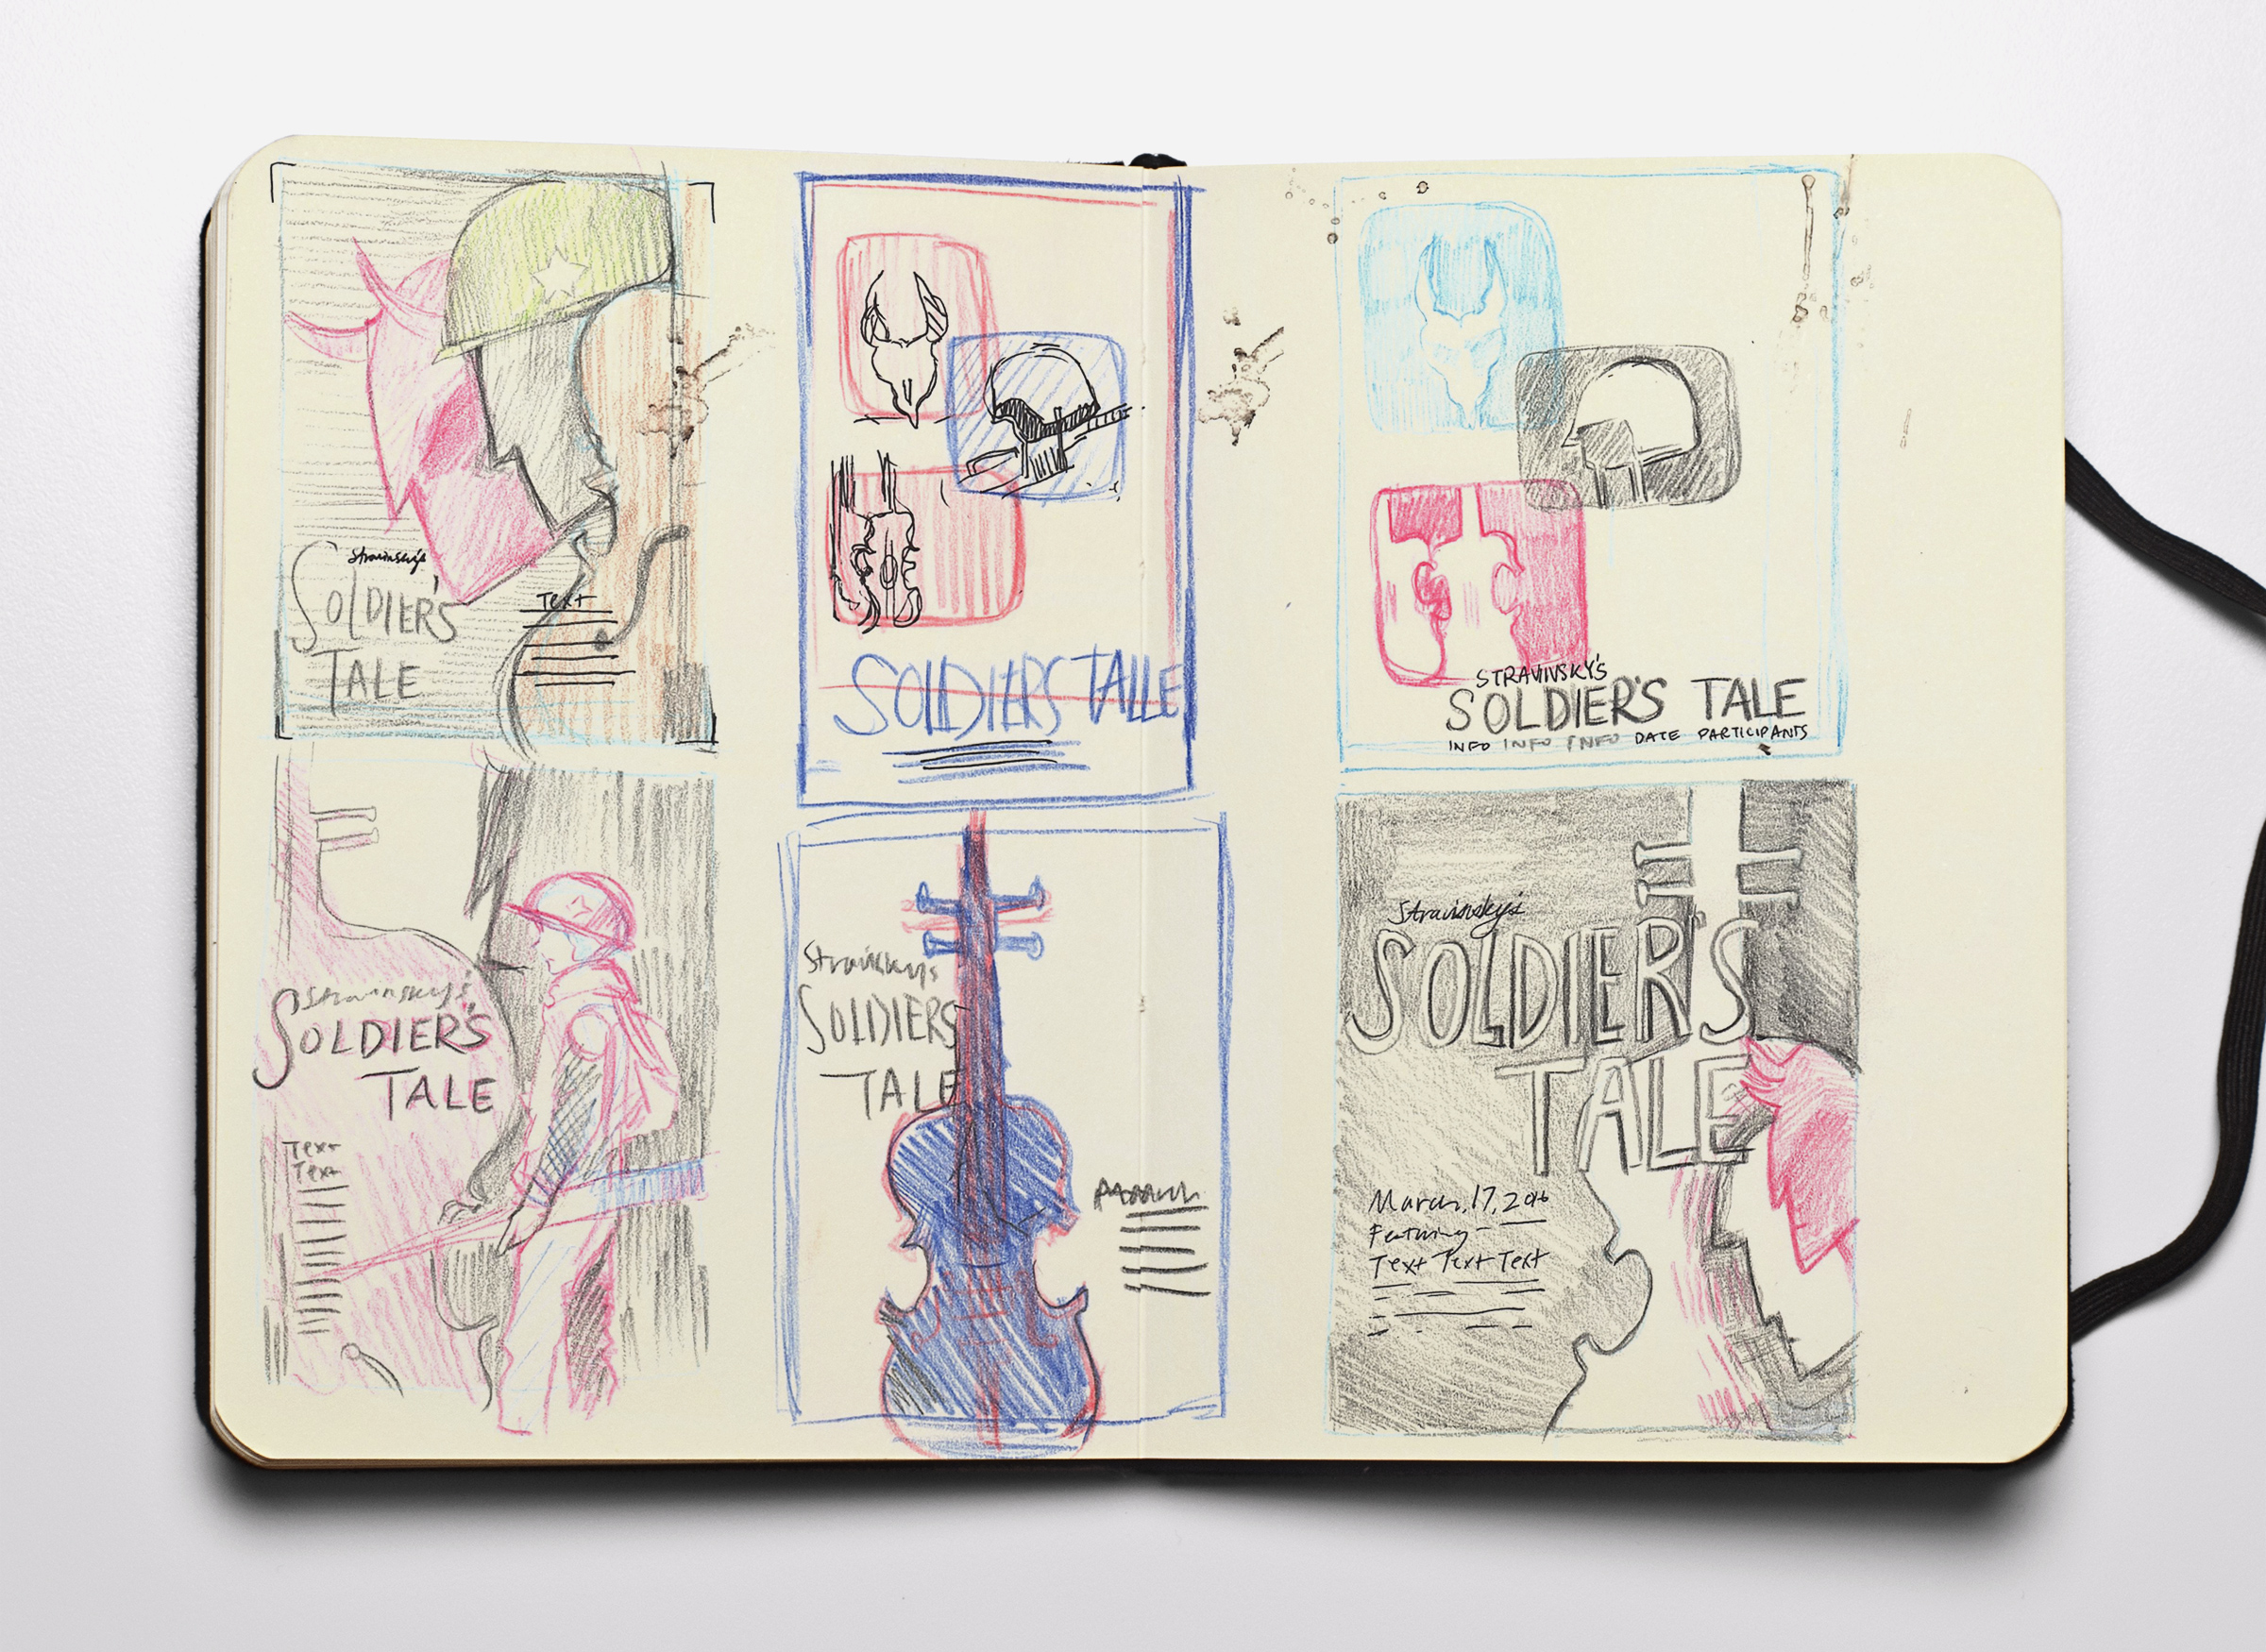 Stravinsky's
SOLDIER'S
TALE
Text
SOLDIERS TALLE
STRAVINSKY'S
SOLDIER'S TALE
INFO INFO INFO DATE PARTICIPANTS
Stravinsky's
SOLDIER'S
TALE
Text
Text
Stravinskys
SOLDIERS
TALE
Stravinsky's
SOLDIER'S
TALE
March, 17, 2016
Featuring
Text Text Text